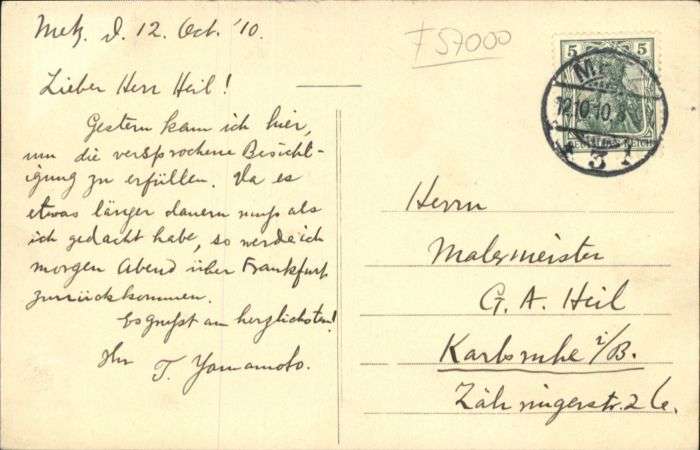 Metz, d. 12. Oct. '10.
Lieber Herr Heil!
Gestern kam ich hier,
um die versprochene Besicht-
igung zu erfüllen. Da es
etwas länger dauern muss als
ich gedacht habe, so werde ich
morgen Abend über Frankfurt
zurückkommen.
Es grüsst am herzlichsten!
Ihr T. Yamamoto.
F 57000
5 5
12.10.10.
* 3 f
Herrn
Malermeister
G. A. Heil
Karlsruhe i/B.
Zähringerstr. 26.